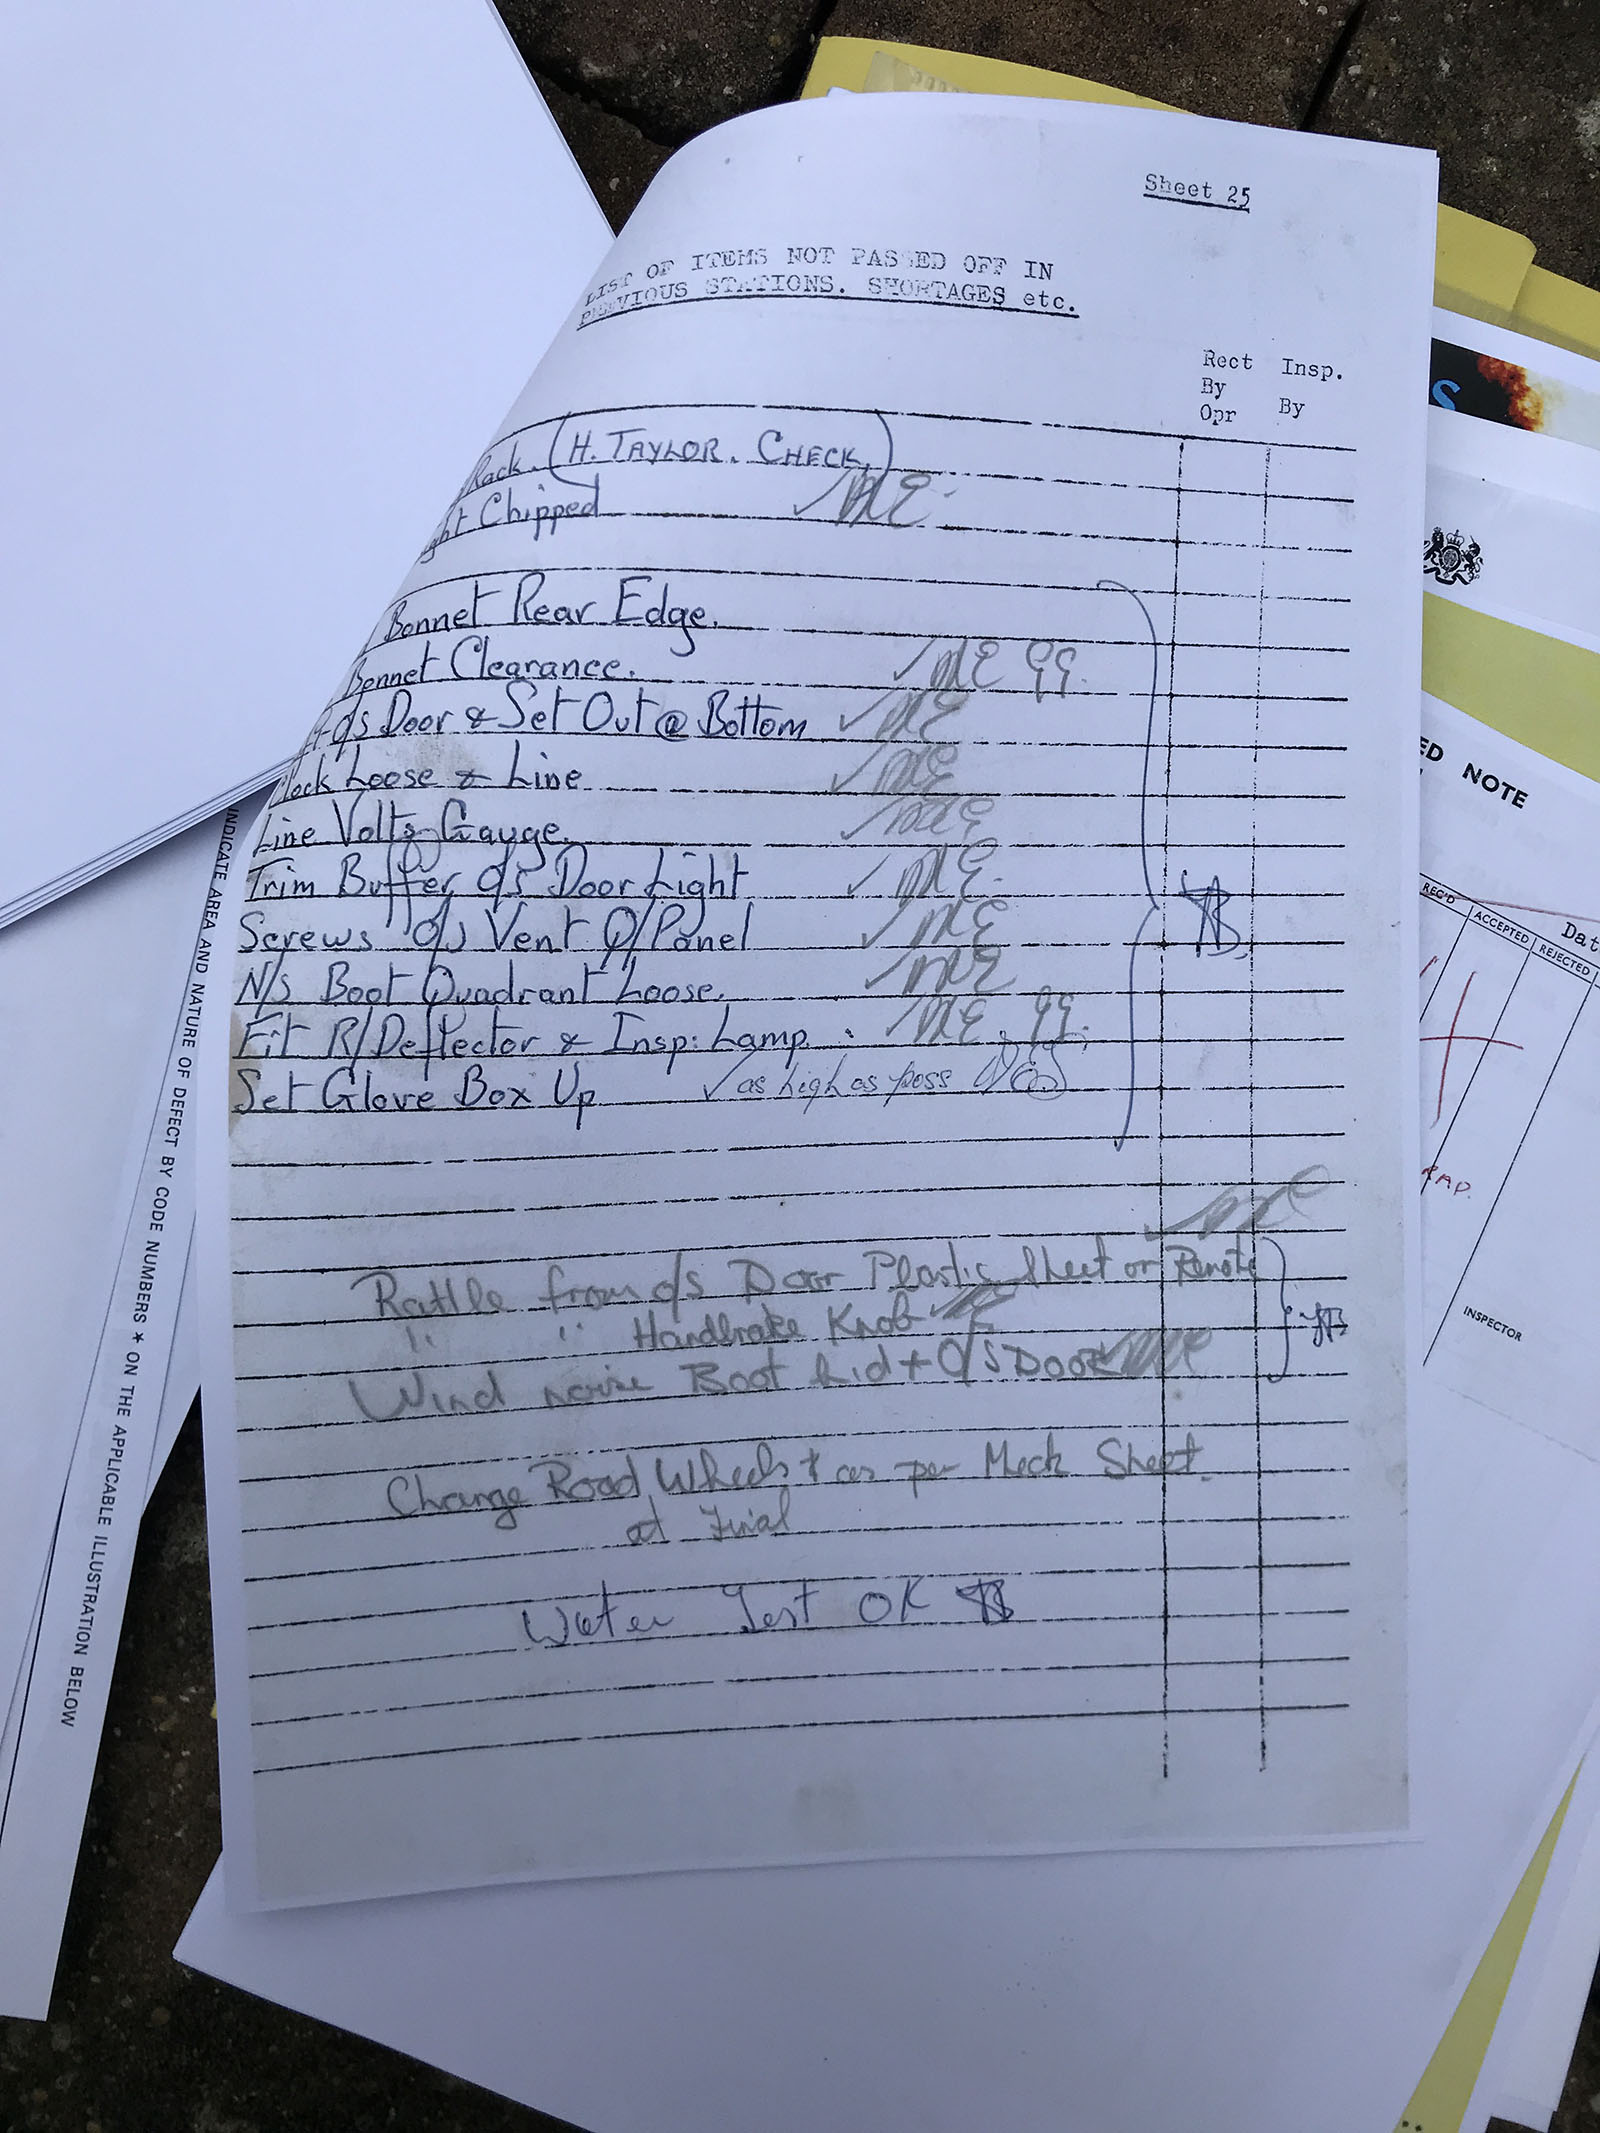 Sheet 25
LIST OF ITEMS NOT PASSED OFF IN
PREVIOUS STATIONS. SHORTAGES etc.
Rect Insp.
By
Opr By
Rack. (H. TAYLOR. CHECK.)
ght Chipped ✓
Bonnet Rear Edge.
Bonnet Clearance. ✓
o/s Door & Set Out @ Bottom ✓
Clock Loose & Line ✓
Line Volts Gauge. ✓
Trim Buffer o/s Door Light ✓
Screws o/s Vent Q/Panel ✓
N/S Boot Quadrant Loose. ✓
Fit R/Deflector & Insp: Lamp. ✓
Set Glove Box Up ✓ as high as poss
Rattle from o/s Door Plastic Sheet or Remote
" " Handbrake Knob
Wind noise Boot Lid + O/S Door
Change Road Wheels + as per Mech Sheet.
at Final
Water Test OK
INDICATE AREA AND NATURE OF DEFECT BY CODE NUMBERS * ON THE APPLICABLE ILLUSTRATION BELOW
S
ED NOTE
Dat
REC'D ACCEPTED REJECTED
INSPECTOR